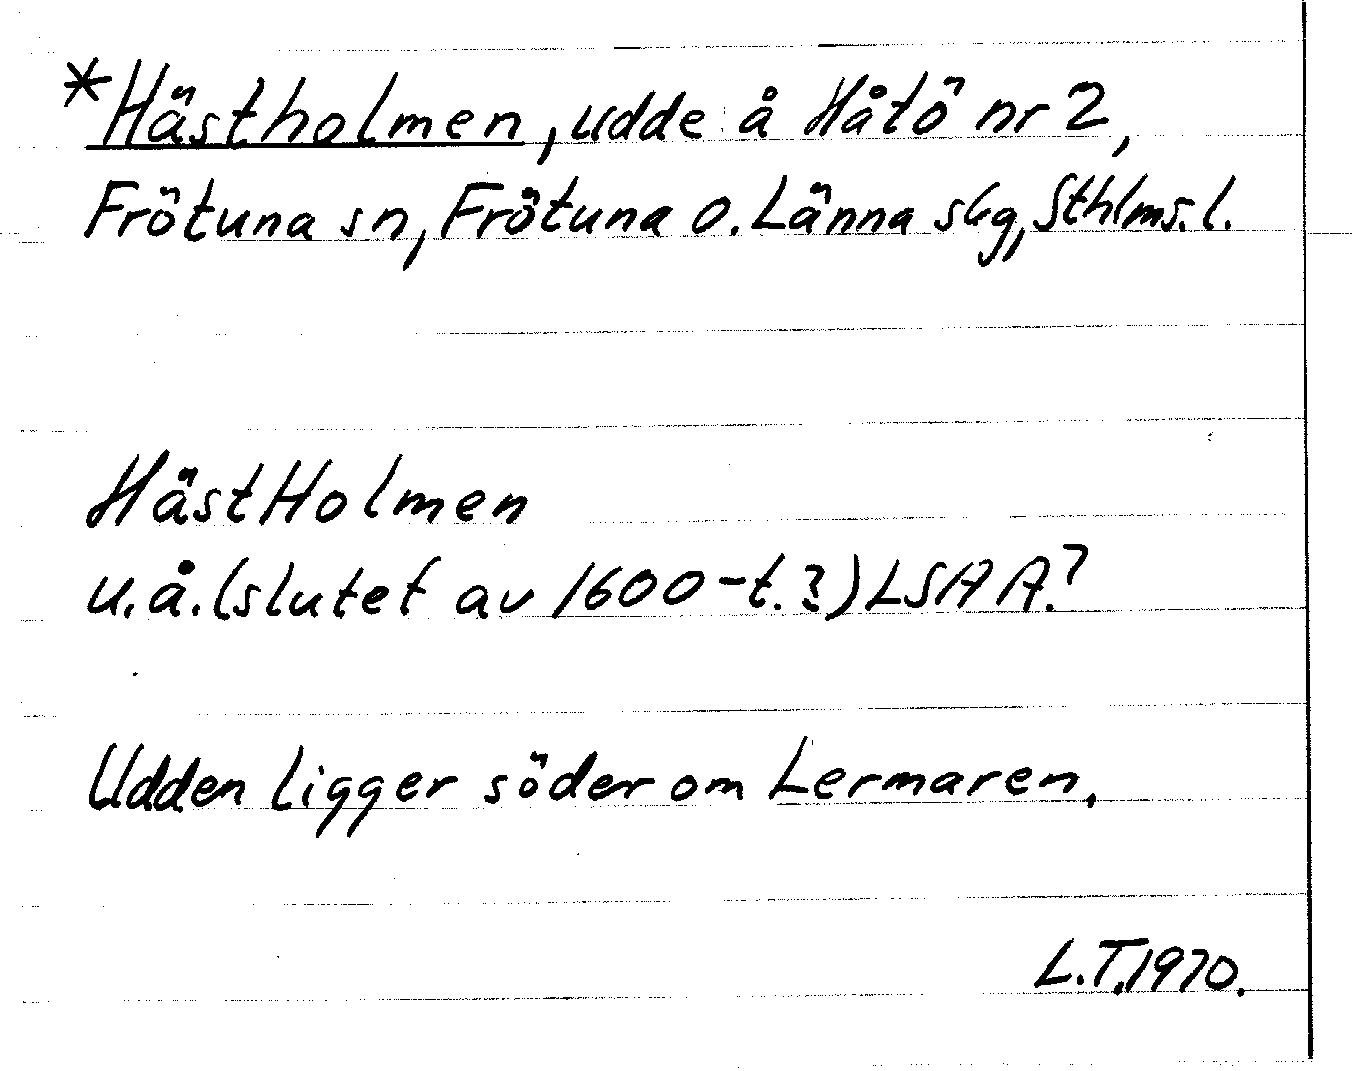 *Hästholmen, udde å Håtö nr 2,
Frötuna sn, Frötuna o. Länna skg, Sthlms. l.
HästHolmen
u.å. (slutet av 1600-t.?) LSA A.?
Udden ligger söder om Lermaren.
L.T. 1970.